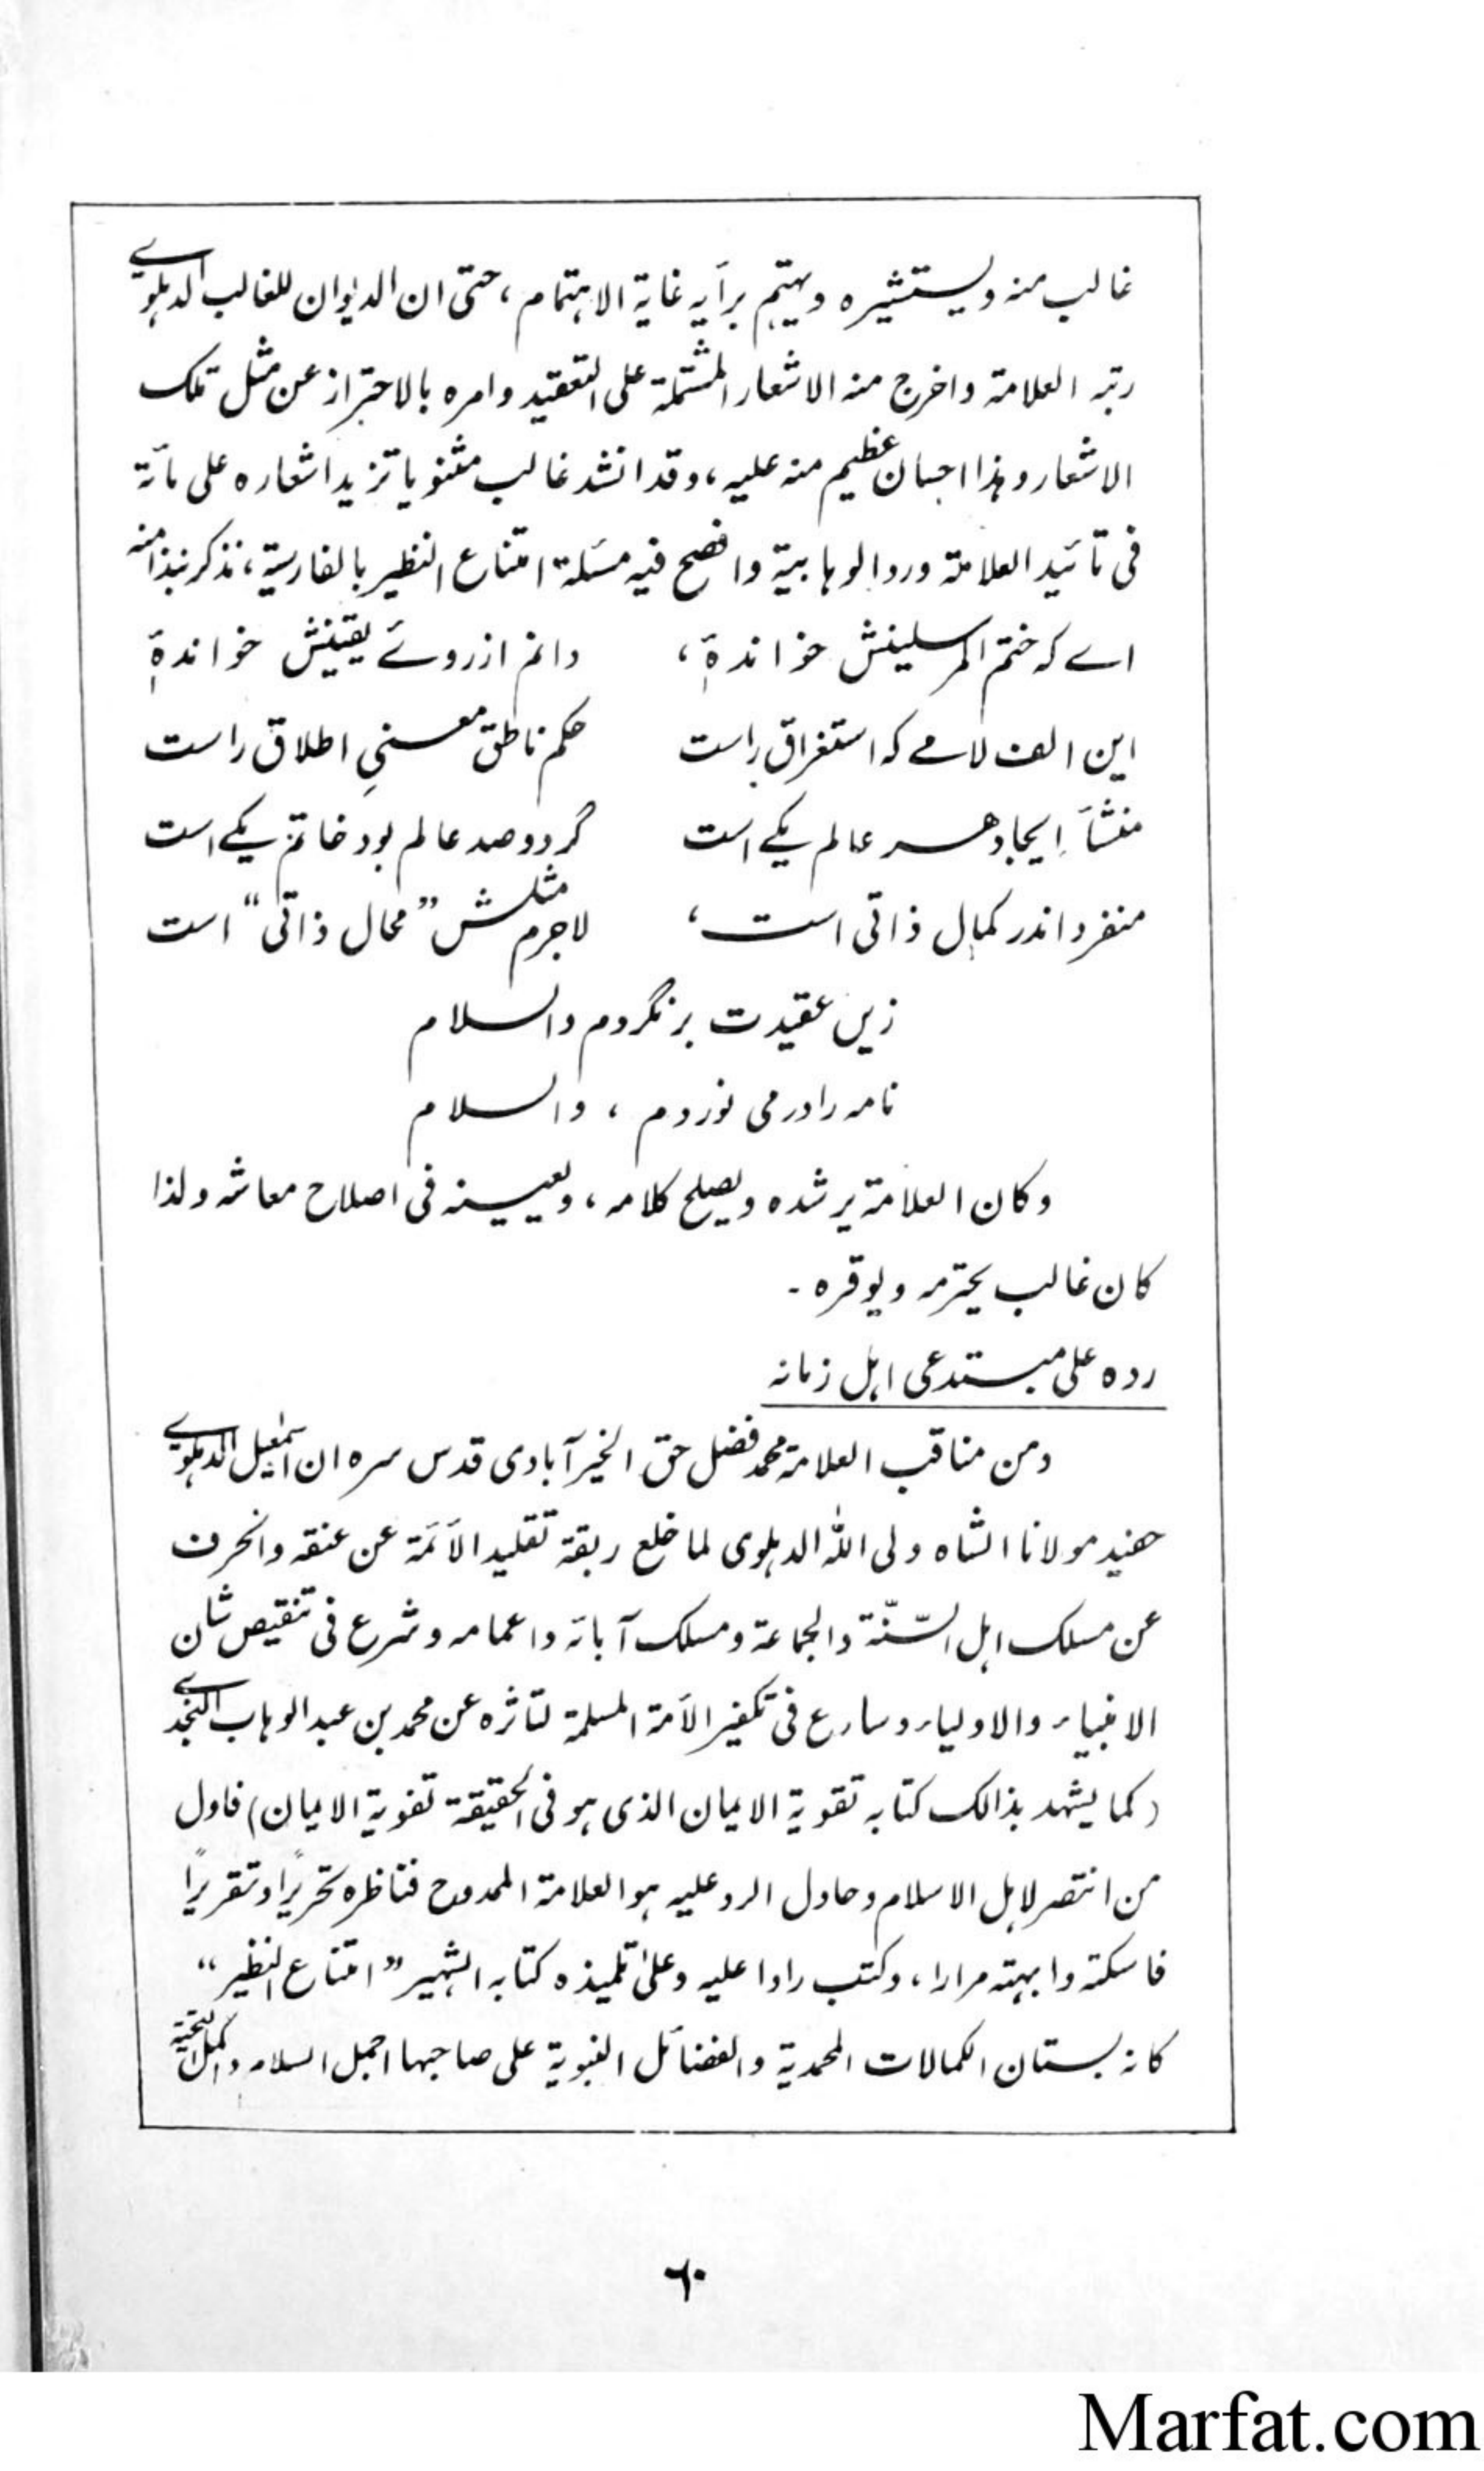 غالب منه ويستشيره ويهتم برأيه غاية الاهتمام، حتى ان الديوان للغالب الدهلوي
رتبه العلامة واخرج منه الاشعار المشتملة على التعقيد وامره بالاحتراز عن مثل تلك
الاشعار وهذا احسان عظيم منه عليه، وقد انشد غالب مثنويا تزيد اشعاره على مائة
فى تائيد العلامة ورد الوهابية وافصح فيه مسئلة امتناع النظير بالفارسية، نذكر نبذا منه
اے کہ ختم المرسلینش خواندۂ، دانم از روئے یقینش خواندۂ
این الف لامے کہ استغراق راست حکم ناطق معنیِ اطلاق راست
منشأِ ایجاد ھر عالم یکے است گر دو صد عالم بود خاتم یکے است
منفرد اندر کمال ذاتی است، لاجرم مثلش ”محال ذاتی“ است
زیں عقیدت برنگردم والسلام
نامہ را در می نوردم، والسلام
وكان العلامة يرشده ويصلح كلامه، ويعينه فى اصلاح معاشه ولذا
كان غالب يحترمه ويوقره۔
رده على مبتدعى اهل زمانه
ومن مناقب العلامة محمد فضل حق الخيرآبادى قدس سره ان اسمٰعيل الدهلوي
حفيد مولانا الشاه ولى اللّٰه الدهلوى لما خلع ربقة تقليد الأئمة عن عنقه وانحرف
عن مسلك اهل السّنّة والجماعة ومسلك آبائه واعمامه وشرع فى تنقيص شان
الانبياء والاولياء وسارع فى تكفير الأمة المسلمة لتاثره عن محمد بن عبد الوهاب النجدي
(كما يشهد بذالك كتابه تقوية الايمان الذى هو فى الحقيقة تفوية الايمان) فاول
من انتصر لاهل الاسلام وحاول الرد عليه هو العلامة الممدوح فناظره تحريرًا وتقريرًا
فاسكته وابهته مرارا، وكتب رادا عليه وعلىٰ تلميذه كتابه الشهير ”امتناع النظير“
كانه بستان الكمالات المحمدية والفضائل النبوية على صاحبها اجمل السلام واكمل التحية
٦٠
Marfat.com